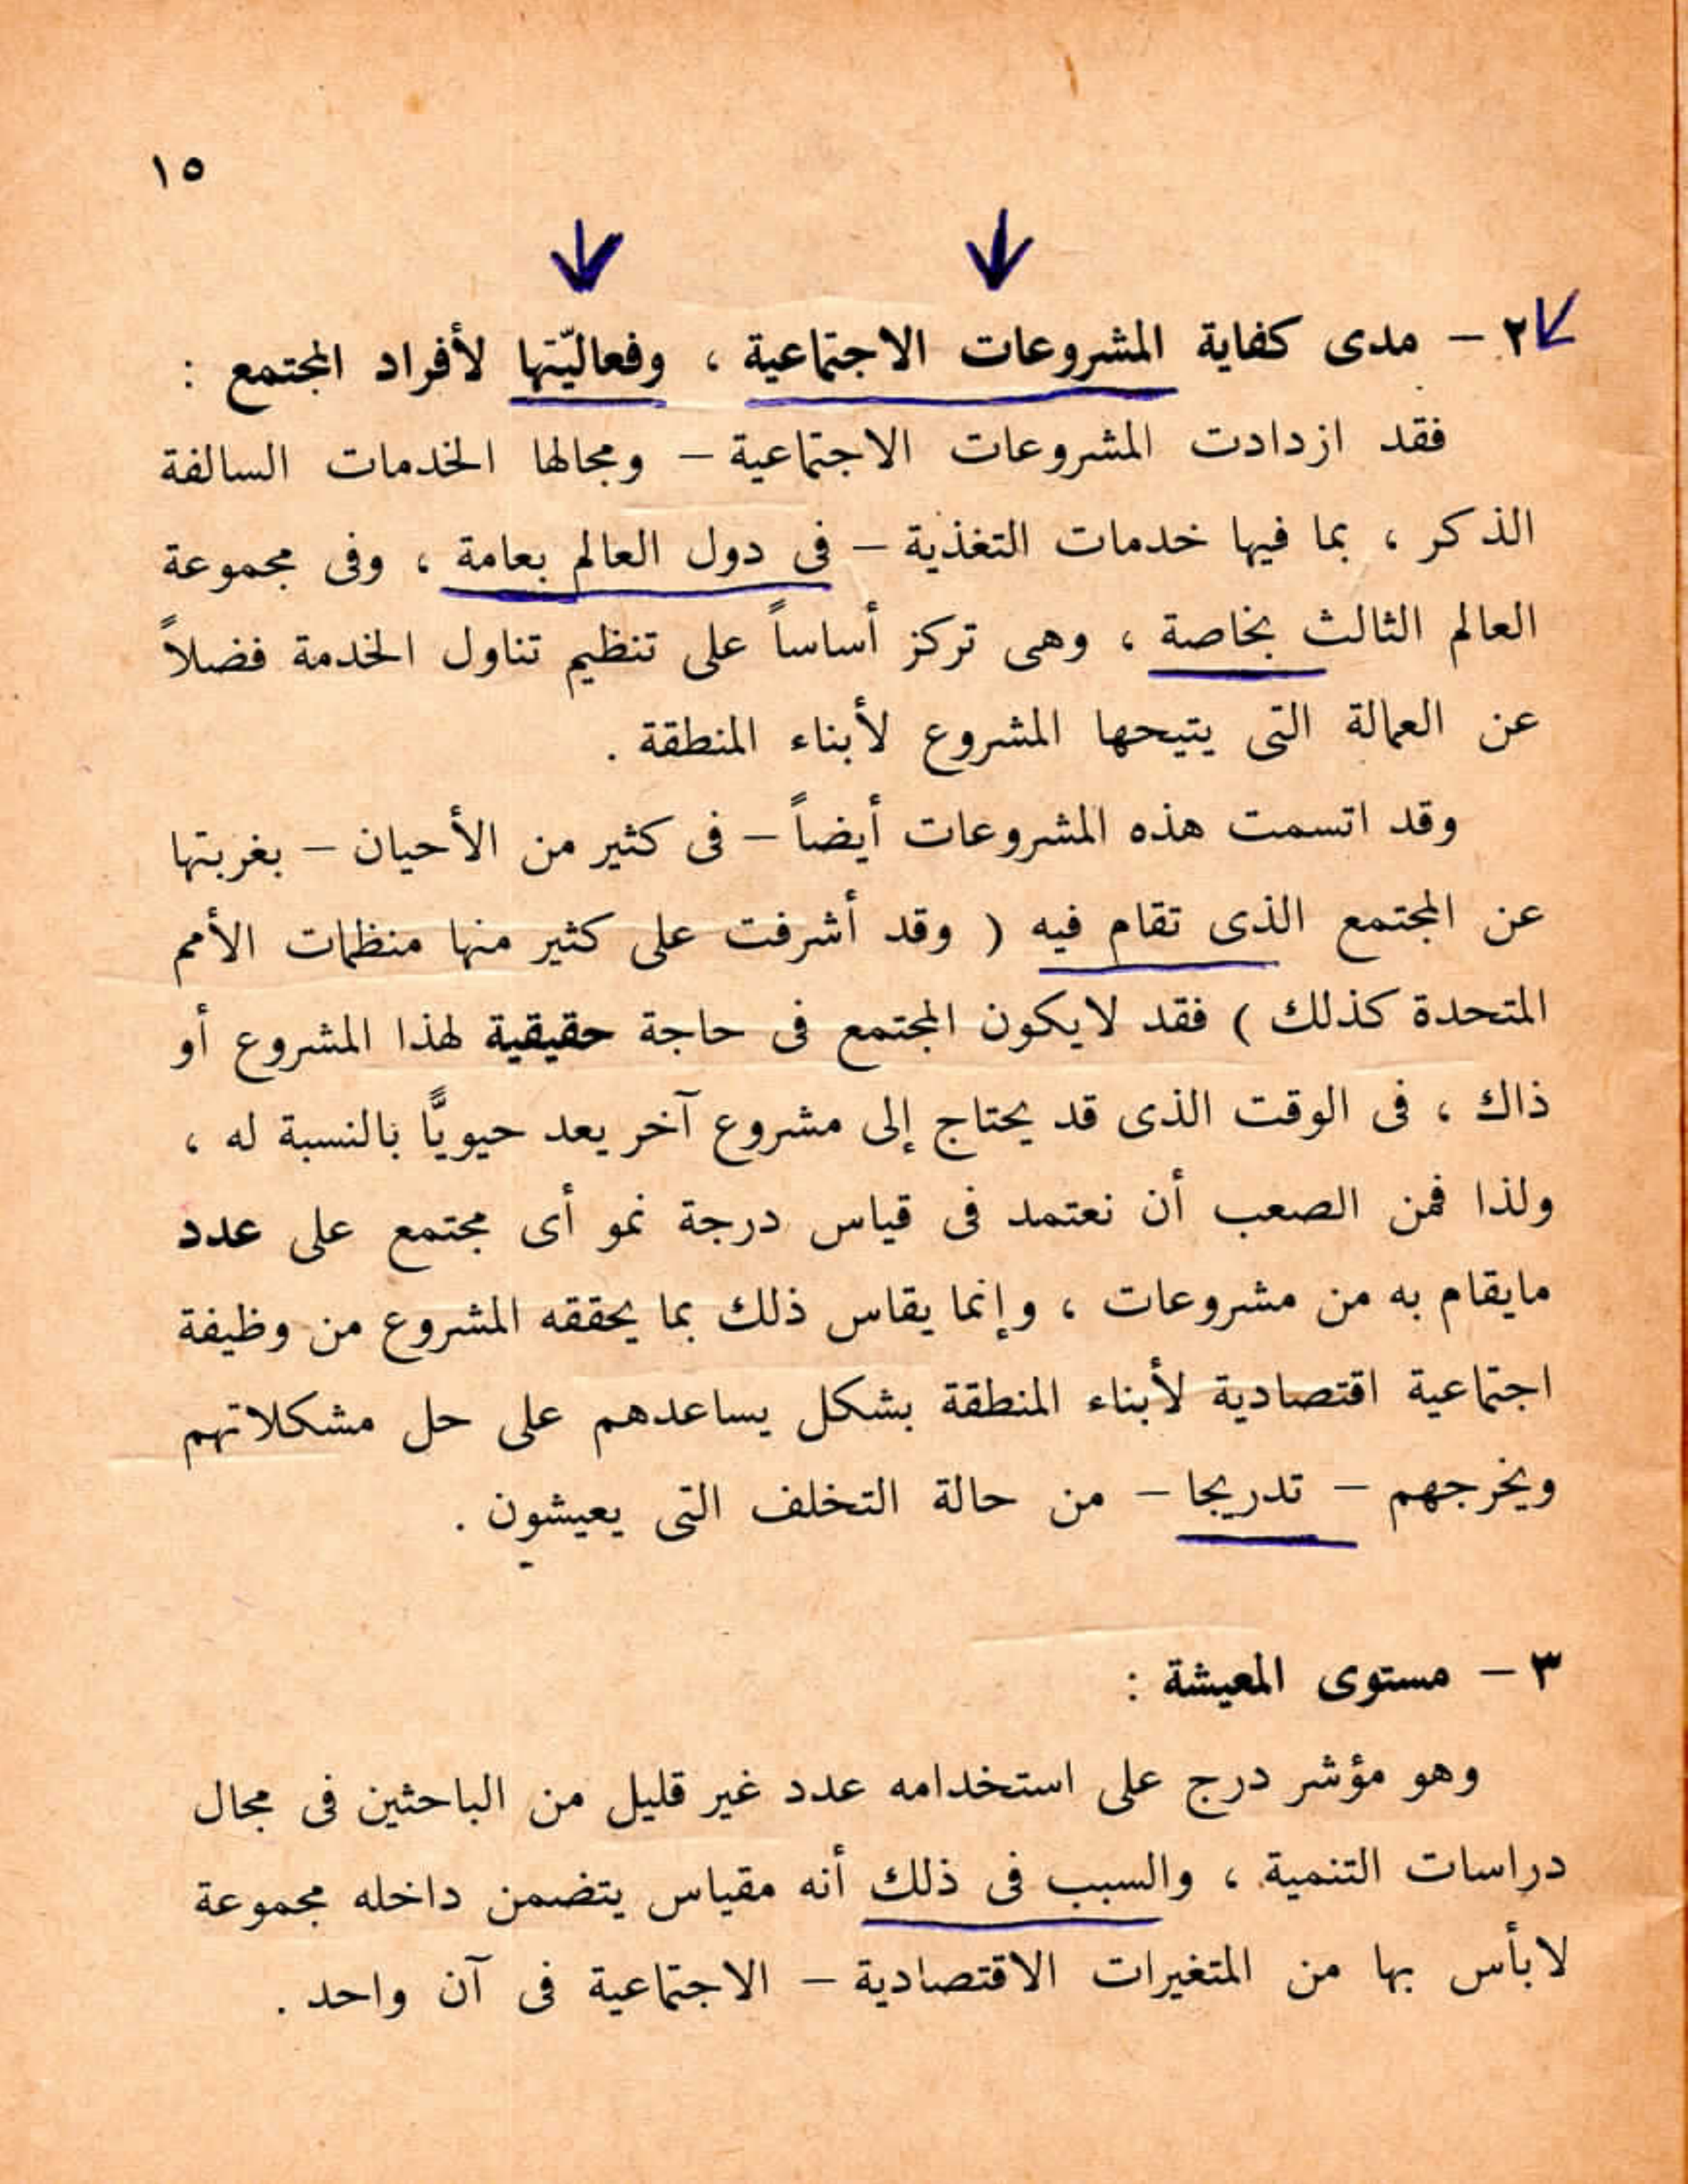 ١٥
٢ – مدى كفاية المشروعات الاجتماعية ، وفعاليّتها لأفراد المجتمع :
فقد ازدادت المشروعات الاجتماعية – ومجالها الخدمات السالفة
الذكر ، بما فيها خدمات التغذية – فى دول العالم بعامة ، وفى مجموعة
العالم الثالث بخاصة ، وهى تركز أساساً على تنظيم تناول الخدمة فضلاً
عن العمالة التى يتيحها المشروع لأبناء المنطقة .
وقد اتسمت هذه المشروعات أيضاً – فى كثير من الأحيان – بغربتها
عن المجتمع الذى تقام فيه ( وقد أشرفت على كثير منها منظمات الأمم
المتحدة كذلك ) فقد لايكون المجتمع فى حاجة حقيقية لهذا المشروع أو
ذاك ، فى الوقت الذى قد يحتاج إلى مشروع آخر يعد حيويًّا بالنسبة له ،
ولذا فمن الصعب أن نعتمد فى قياس درجة نمو أى مجتمع على عدد
مايقام به من مشروعات ، وإنما يقاس ذلك بما يحققه المشروع من وظيفة
اجتماعية اقتصادية لأبناء المنطقة بشكل يساعدهم على حل مشكلاتهم
ويخرجهم – تدريجا – من حالة التخلف التى يعيشون .
٣ – مستوى المعيشة :
وهو مؤشر درج على استخدامه عدد غير قليل من الباحثين فى مجال
دراسات التنمية ، والسبب فى ذلك أنه مقياس يتضمن داخله مجموعة
لابأس بها من المتغيرات الاقتصادية – الاجتماعية فى آن واحد .